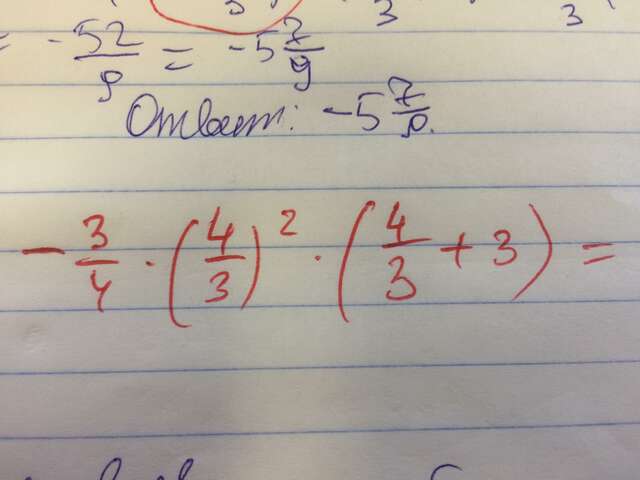 = -52/9 = -5 7/9
Ответ: -5 7/9.
-3/4 · (4/3)² · (4/3 + 3) =